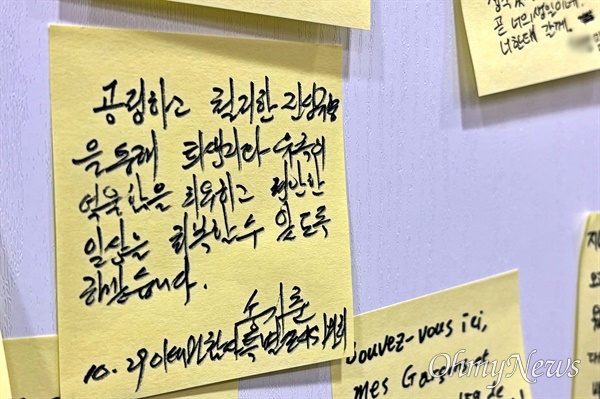 너의 생일이네.
너한테 갈께.
공정하고 철저한 진상규명
을 통해 희생자와 유족의
억울함을 치유하고 편안한
일상을 회복할 수 있도록
하겠습니다.
송기춘
10.29이태원참사특별조사위원회
ouvez-vous ici,
mes
OhmyNews